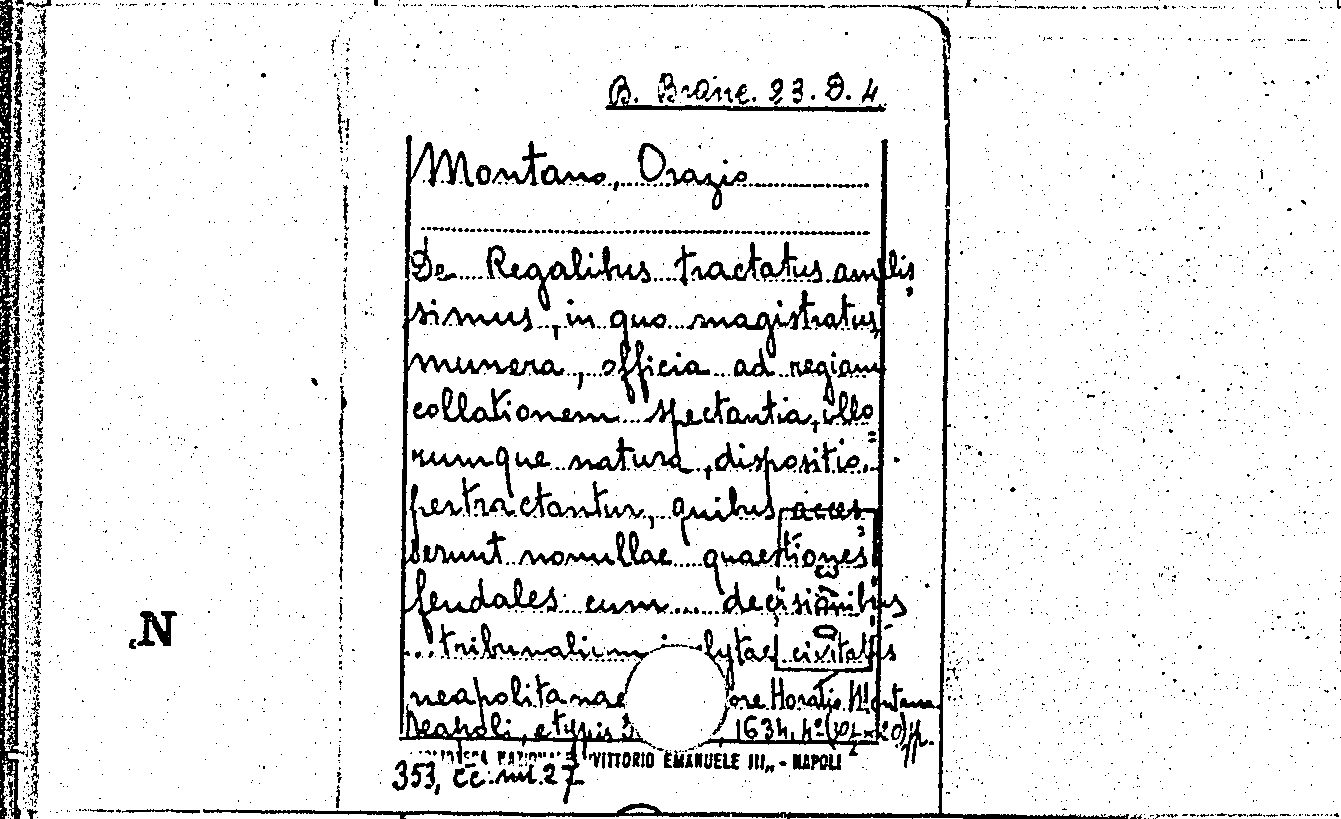 B. Branc. 23. D. 4
Montano, Orazio
De Regalibus tractatus amplis
simus, in quo magistratus,
munera, officia ad regiam
collationem spectantia, illo=
rumque natura, dispositio..
pertractantur, quibus acces=
serunt nonullae quaestiones
feudales cum... decisionibus
... tribunalium lytae civitatis
neapolitanae ore Horatio Montano
Neapoli, e typis 1634, 4° pp.
353, cc. nn. 27
NAZIONALE "VITTORIO EMANUELE III" - NAPOLI
N